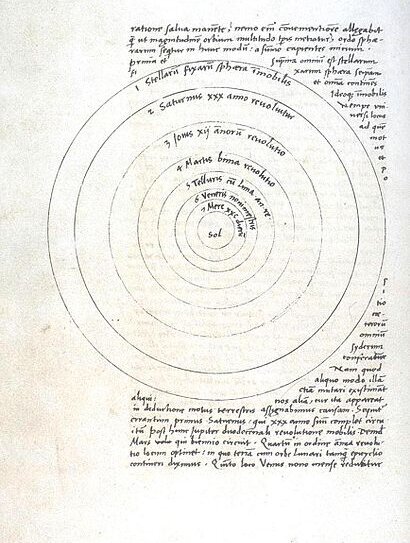 ratione salva manete, nemo em convenientiorē allegabit
q̃ ut magnitudinem orbium multitudo tp̃is metiatur, ordo sphæ=
rarum sequitur in hunc modū: a sūmo capientes initium.
prima et suprema omniū est stellarum
fixarum sphæra seipam
et omnia continens
Ideoq immobilis
nempe uni
versi locus
ad quē
mot
us
et
p
1 Stellarū fixarū sphæra īmobilis
2 Saturnus xxx anno revoluitur
3 Jouis xij añorū reuolutio
4 Martis bima reuolutio
5 Telluris cū luna an. re.
6 Veneris nonimestris
7 Merc xxc dierū
Sol
S
i
tio
cæ=
terorū
omniū
syderum
conferatur
Nam quod
aliquo modo illā
etiā mutari existimāt
aliqui: nos aliā, cur ita appareat
in deductione motus terrestris assignabimus causam. Sequit
errantium primus Saturnus: qui xxx anno suū complet circu
itū post hunc Jupiter duodecennali reuolutione mobilis. Deinde
Mars qui biennio circuit. Quartū in ordine annua reuolu
tio locum optinet: in quo terrā cum orbe Lunari tamq̃ epicyclo
contineri diximus. Quinto loco Venus nono mense reducitur.